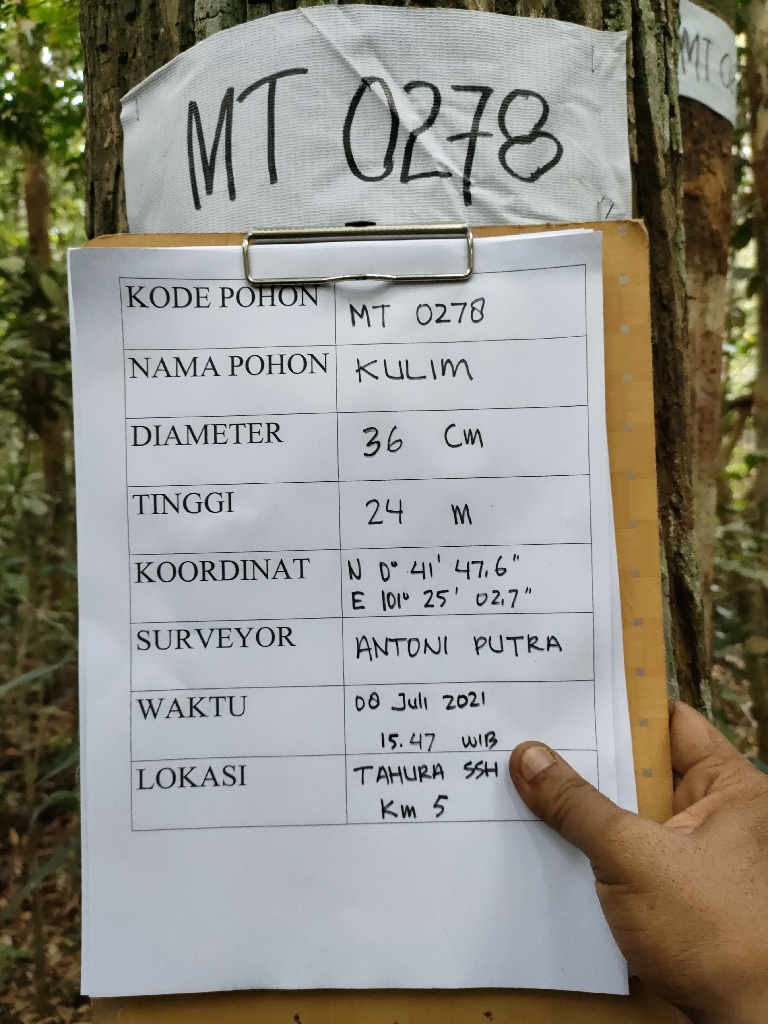 MT 0278
MT 0
KODE POHON MT 0278
NAMA POHON KULIM
DIAMETER 36 Cm
TINGGI 24 m
KOORDINAT N 0° 41' 47.6"
E 101° 25' 02.7"
SURVEYOR ANTONI PUTRA
WAKTU 08 Juli 2021
15.47 WIB
LOKASI TAHURA SSH
Km 5